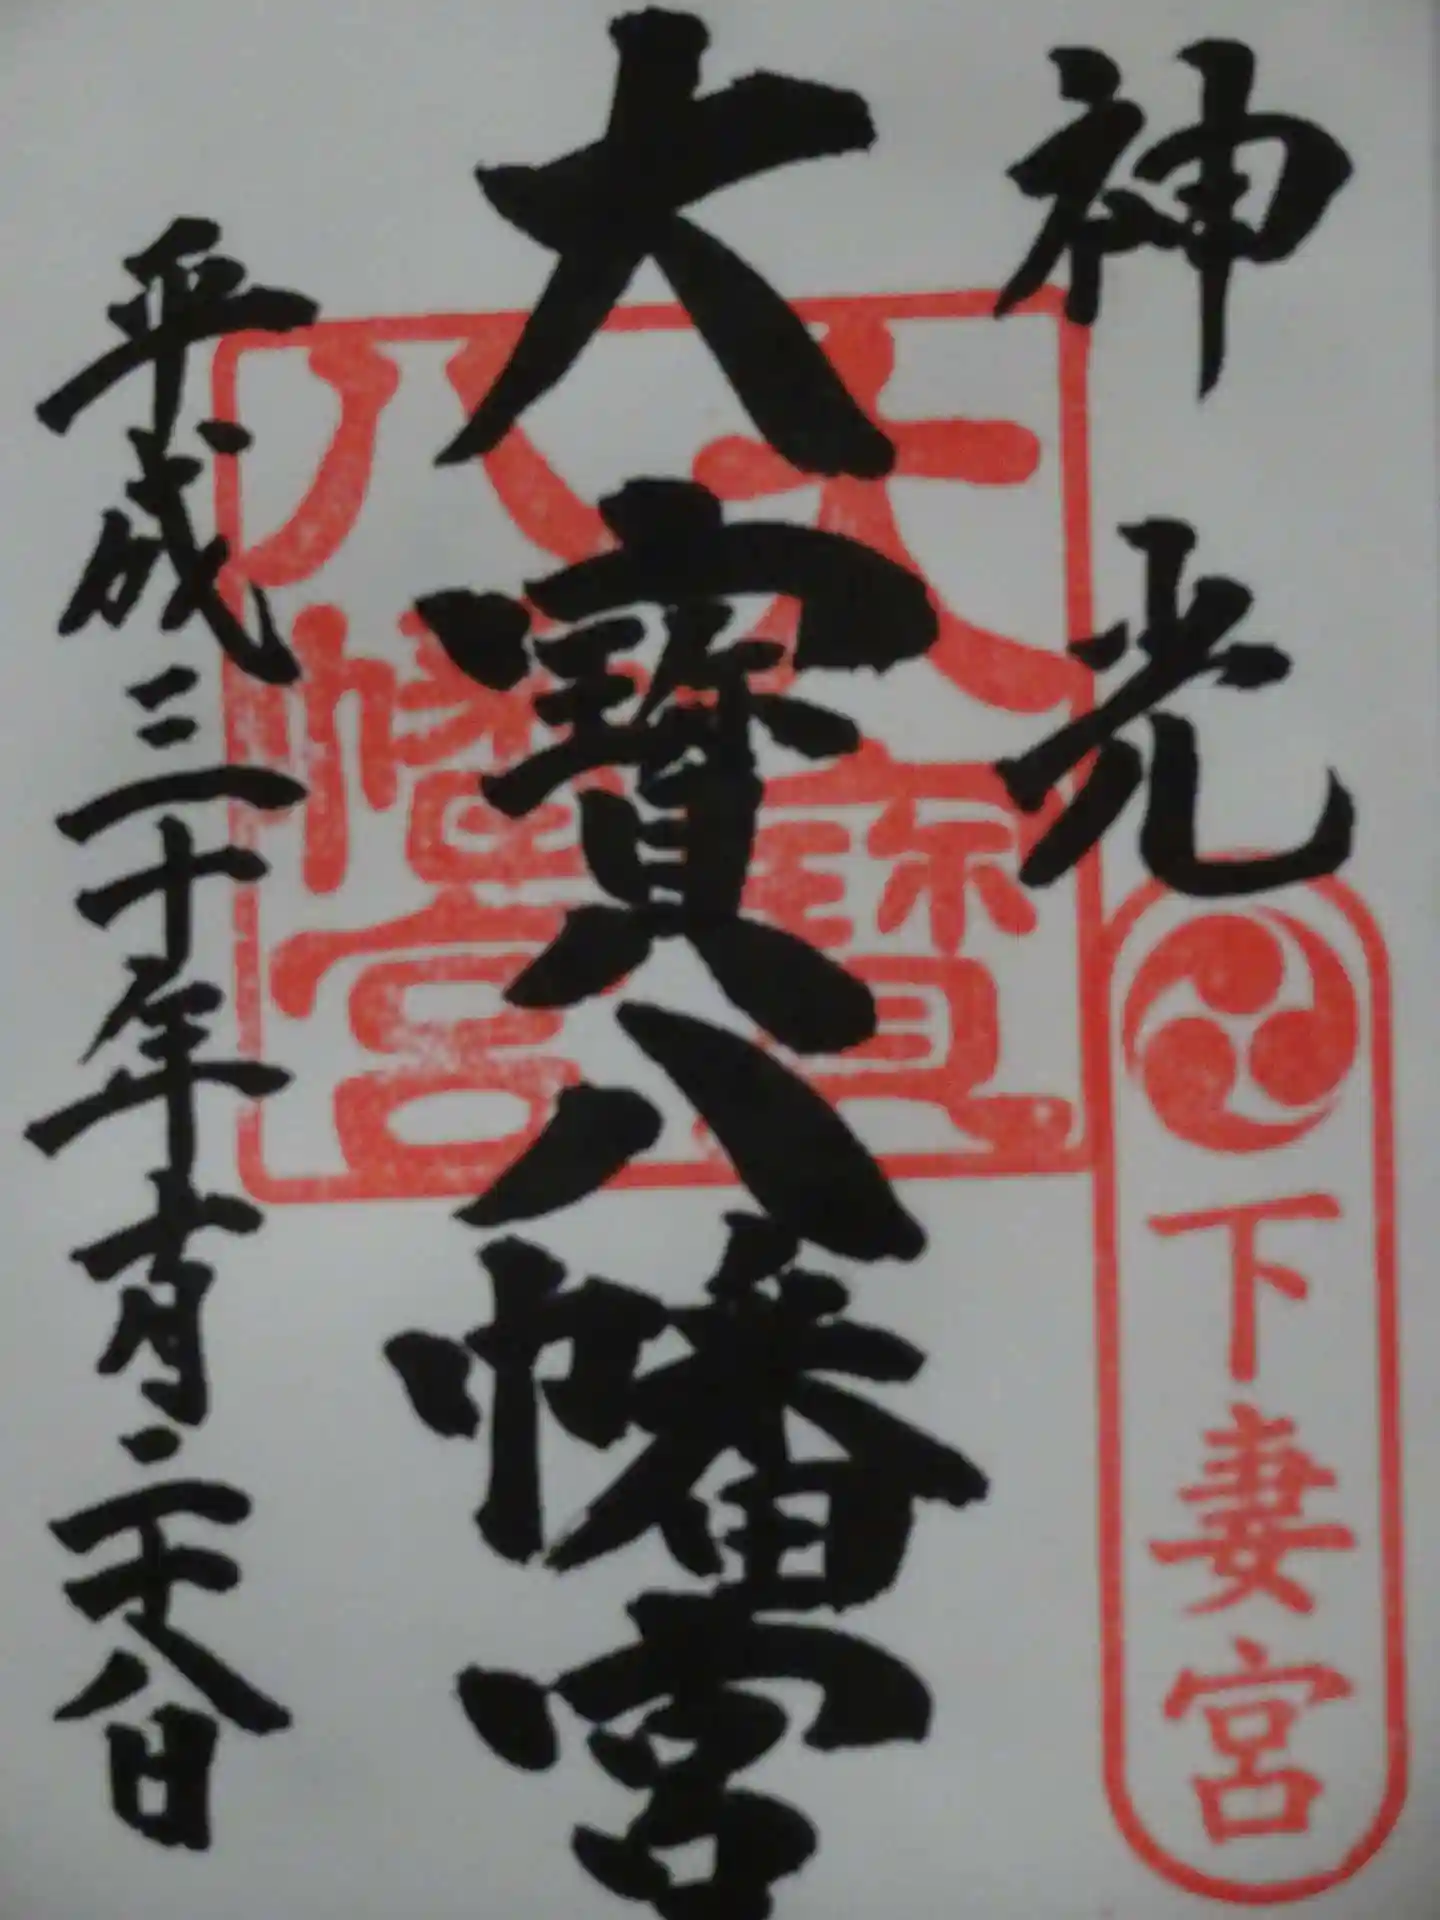 神光
下妻宮
大寳八幡宮
大寳
八幡宮
平成三十年十月二十八日